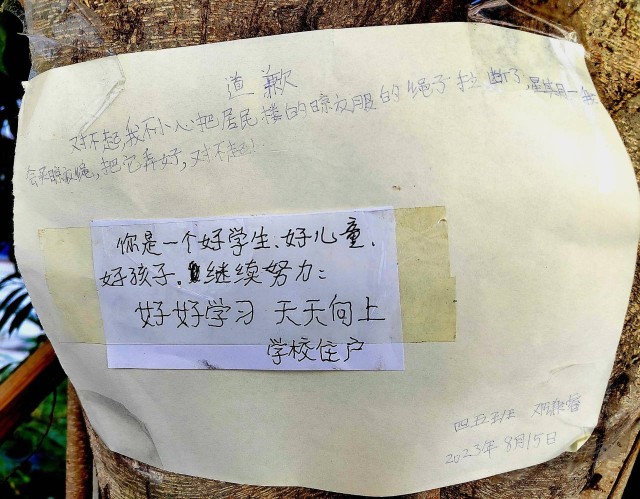 道歉
对不起,我不小心把居民楼的晾衣服的绳子扯断了,星期日一定
会买晾衣绳,把它弄好,对不起!
你是一个好学生、好儿童、
好孩子。继续努力:
好好学习 天天向上
学校住户
四五班
2023年8月15日